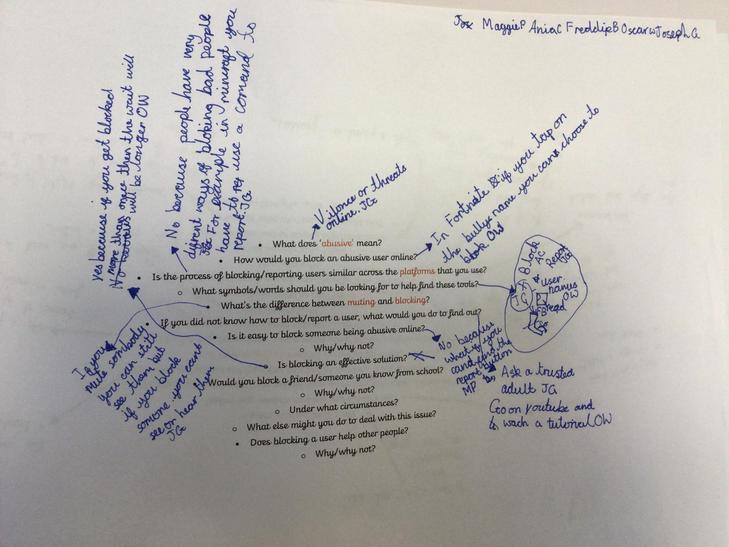 Joe MaggieP AniaC FreddieB OscarW JosephG
yes because if you get blocked
more than once then the wait will
be longer OW
No because people have very
diferent ways of bloking bad people
For example in mincraft you
have to use a comand to
report. JG
Vilonce or threats
online. JG
In Fortnite if you tap on
the bullys name you can choose to
block OW
• What does 'abusive' mean?
• How would you block an abusive user online?
• Is the process of blocking/reporting users similar across the platforms that you use?
○ What symbols/words should you be looking for to help find these tools?
○ What's the difference between muting and blocking?
• If you did not know how to block/report a user, what would you do to find out?
• Is it easy to block someone being abusive online?
○ Why/why not?
• Is blocking an effective solution?
Would you block a friend/someone you know from school?
○ Why/why not?
○ Under what circumstances?
○ What else might you do to deal with this issue?
• Does blocking a user help other people?
○ Why/why not?
Block
Report
JG
user
OW
If you
mute somebody
you can still
see them but
if you block
someone you cant
see or hear them
JG
No because
what if you
cand find the
report button
MP
Ask a trusted
adult JG
Go on youtube and
wach a tutorial OW